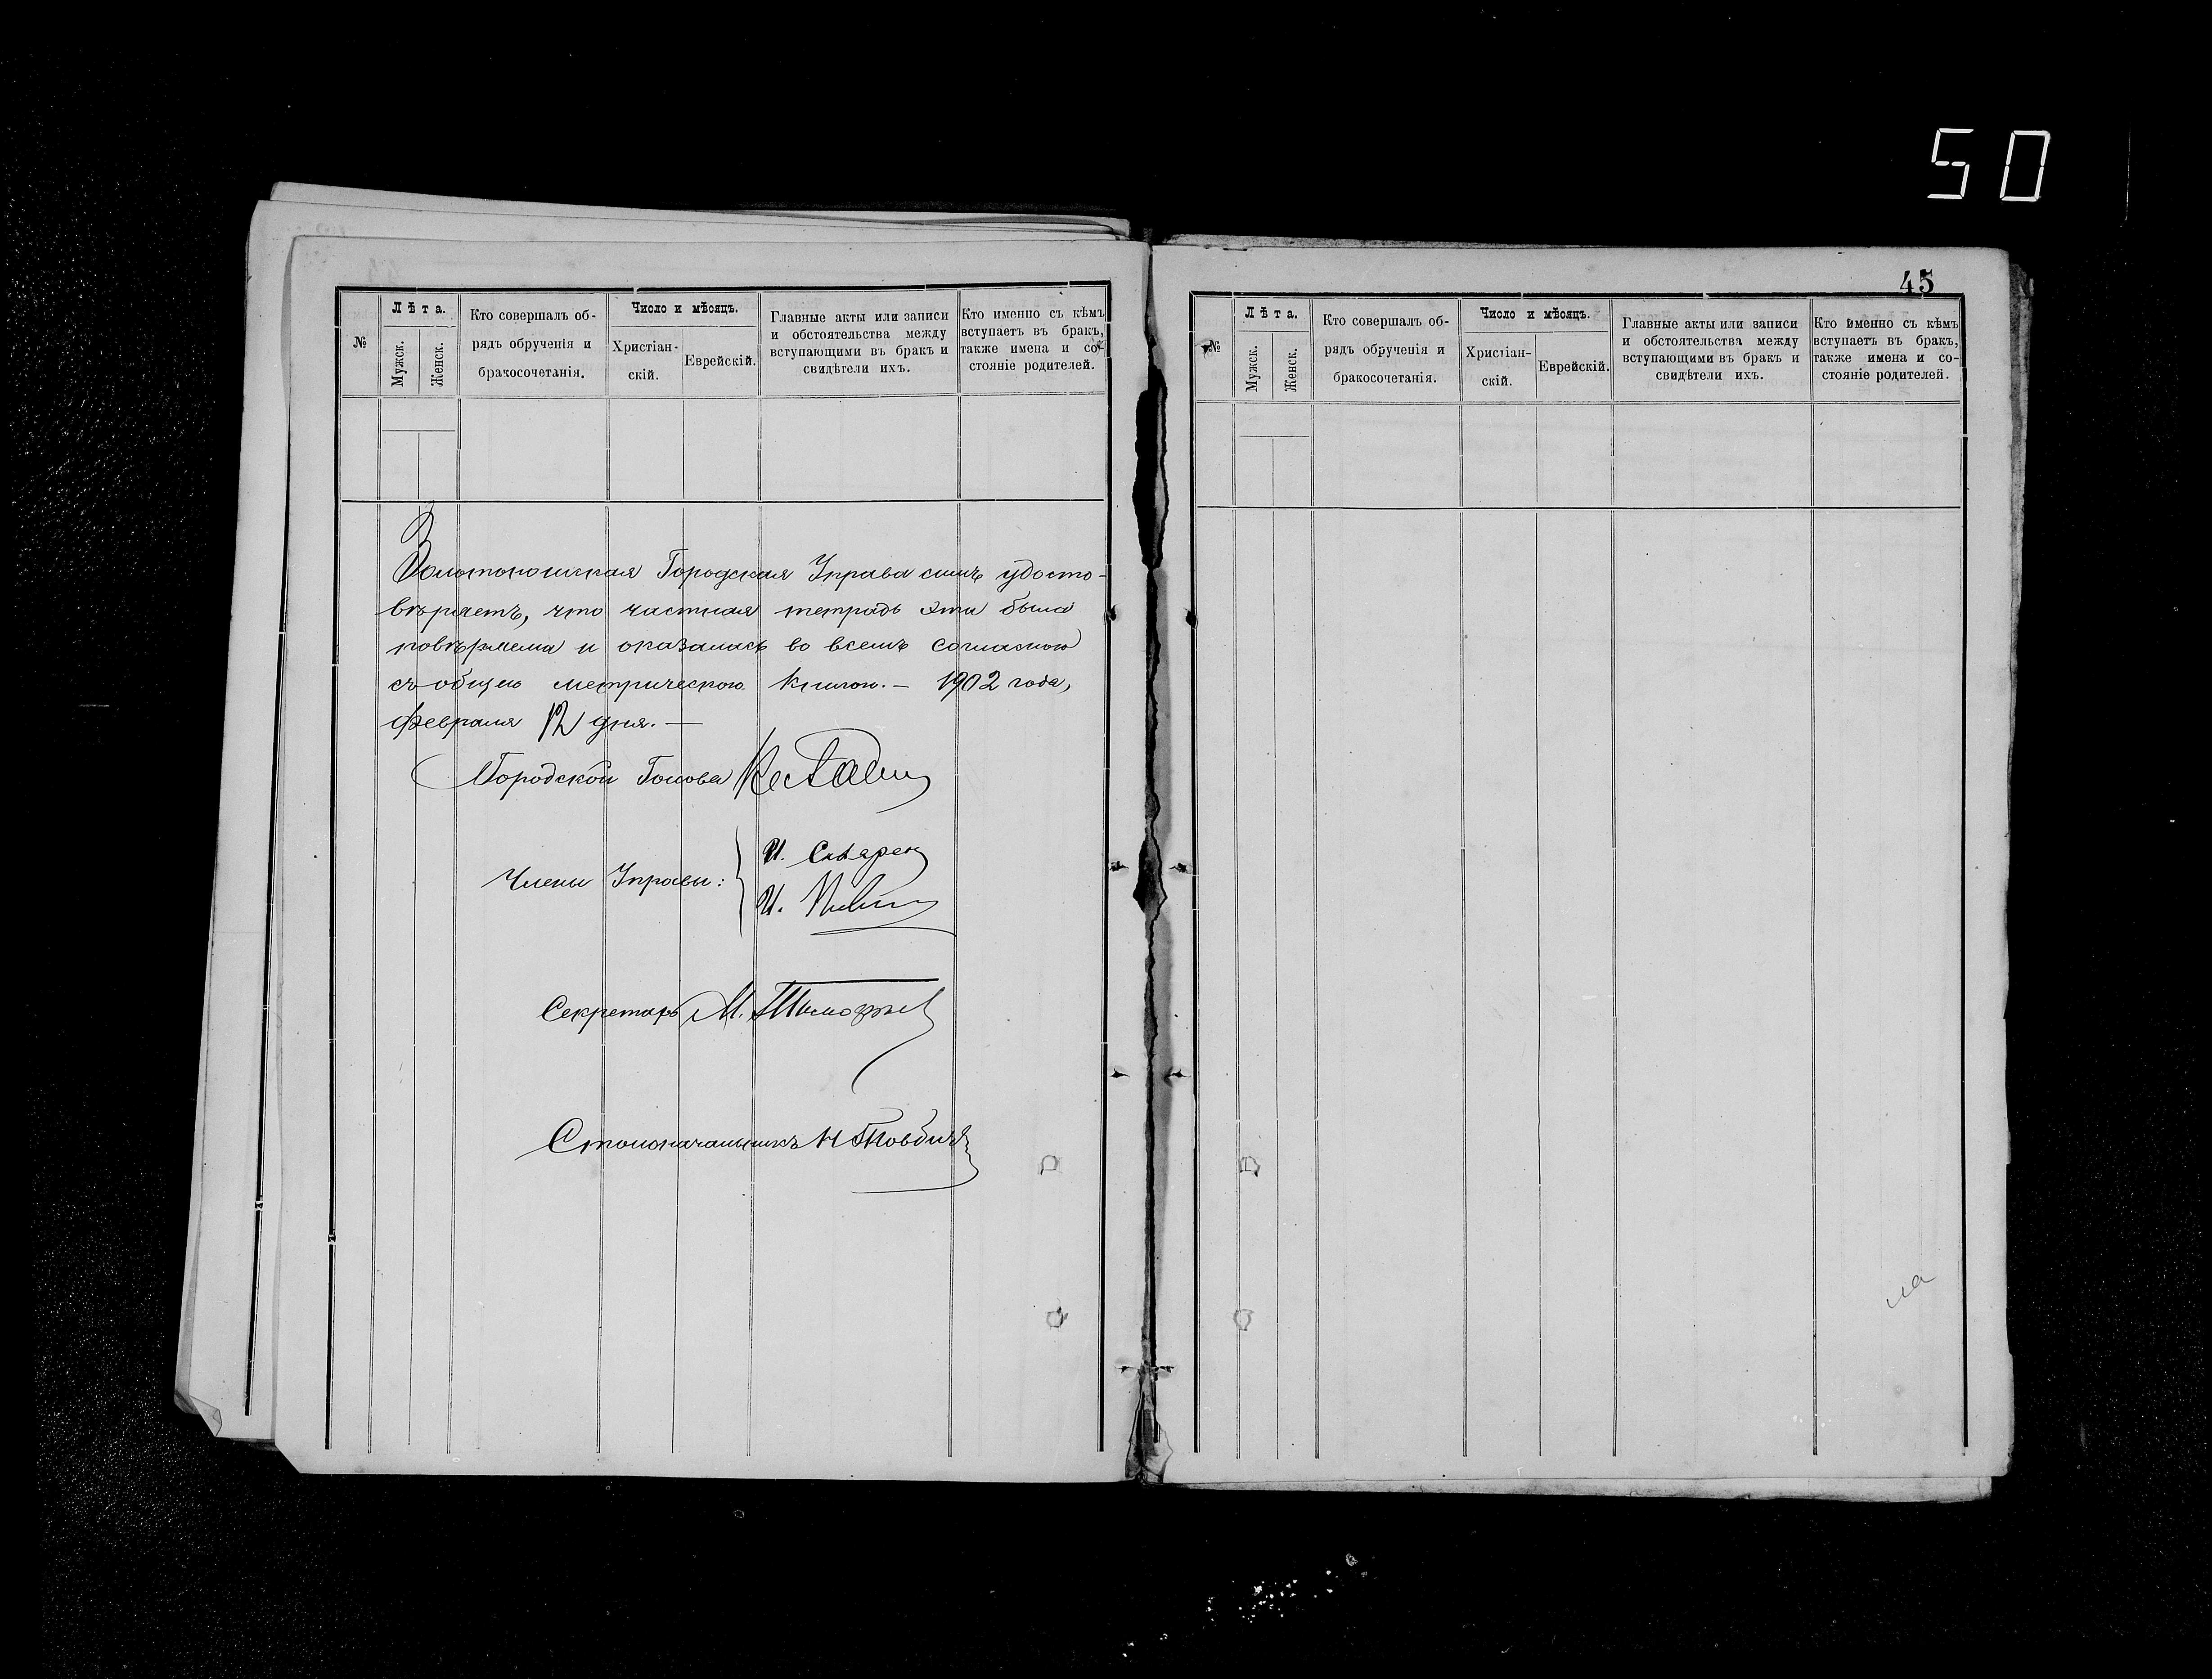 50
45
№
Лѣта.
Мужск.
Женск.
Кто совершалъ об-
рядъ обрученія и
бракосочетанія.
Число и мѣсяцъ.
Христіан-
скій.
Еврейскій.
Главные акты или записи
и обстоятельства между
вступающими въ бракъ и
свидѣтели ихъ.
Кто именно съ кѣмъ
вступаетъ въ бракъ,
также имена и со-
стояніе родителей.
Золотоношская Городская Управа симъ удосто-
вѣряетъ, что частная тетрадь эта была
повѣряема и оказалась во всемъ согласною
съ общею метрическою книгою. — 1902 года,
февраля 12 дня. —
Городской Голова
Члены Управы:
И.
И.
Секретарь М. Тимофѣев
Столоначальникъ Н
№
Лѣта.
Мужск.
Женск.
Кто совершалъ об-
рядъ обрученія и
бракосочетанія.
Число и мѣсяцъ.
Христіан-
скій.
Еврейскій.
Главные акты или записи
и обстоятельства между
вступающими въ бракъ и
свидѣтели ихъ.
Кто именно съ кѣмъ
вступаетъ въ бракъ,
также имена и со-
стояніе родителей.